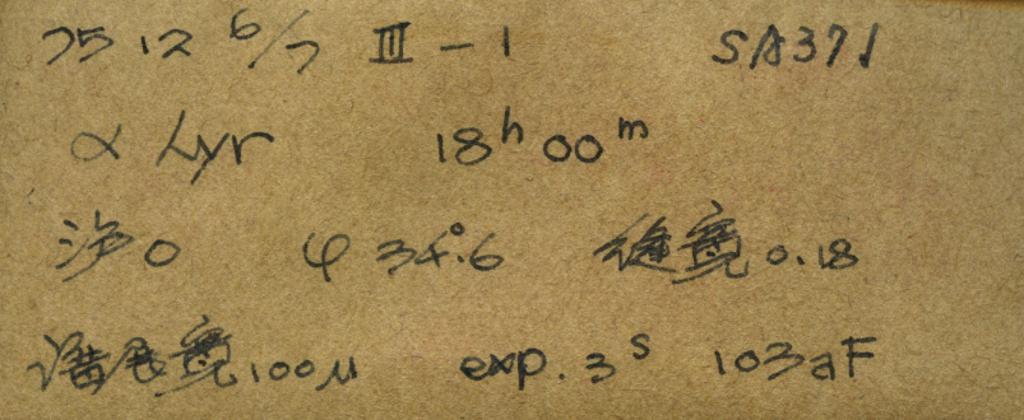 75 12 6/7 III-1 SA371
α Lyr 18ʰ 00ᵐ
沪0 φ 34°.6 缝宽 0.18
谱展宽 100μ exp. 3ˢ 103aF